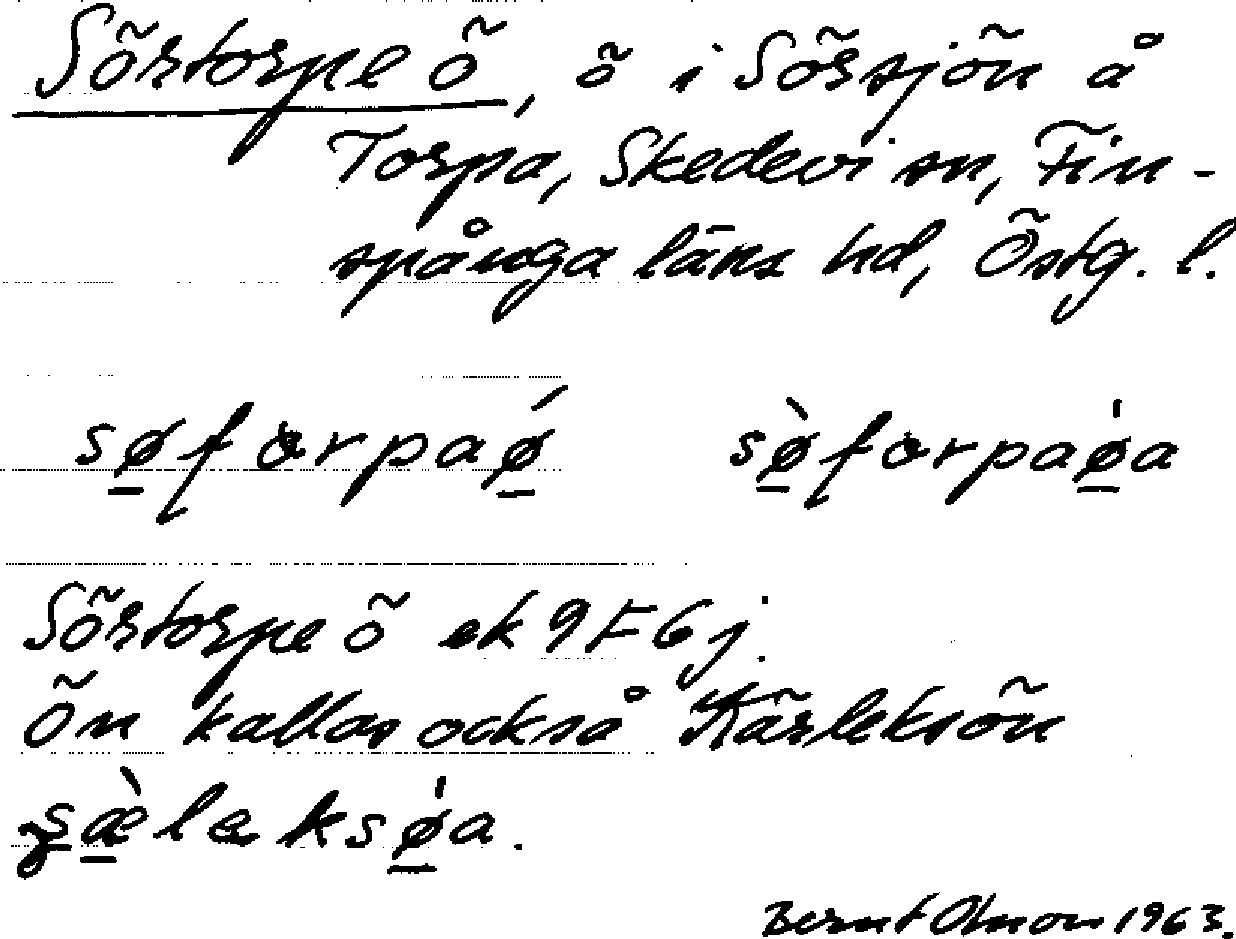 Sörtorpe ö, ö i Sörsjön å
Torpa, Skedevi sn, Fin-
spånga läns hd, Östg. l.
søforpaǿ sø̀forpaø̍a
Sörtorpe ö ek 9F6j.
Ön kallas också Kärleksön
æ̀leksø̍a.
Bernt Olsson 1963.